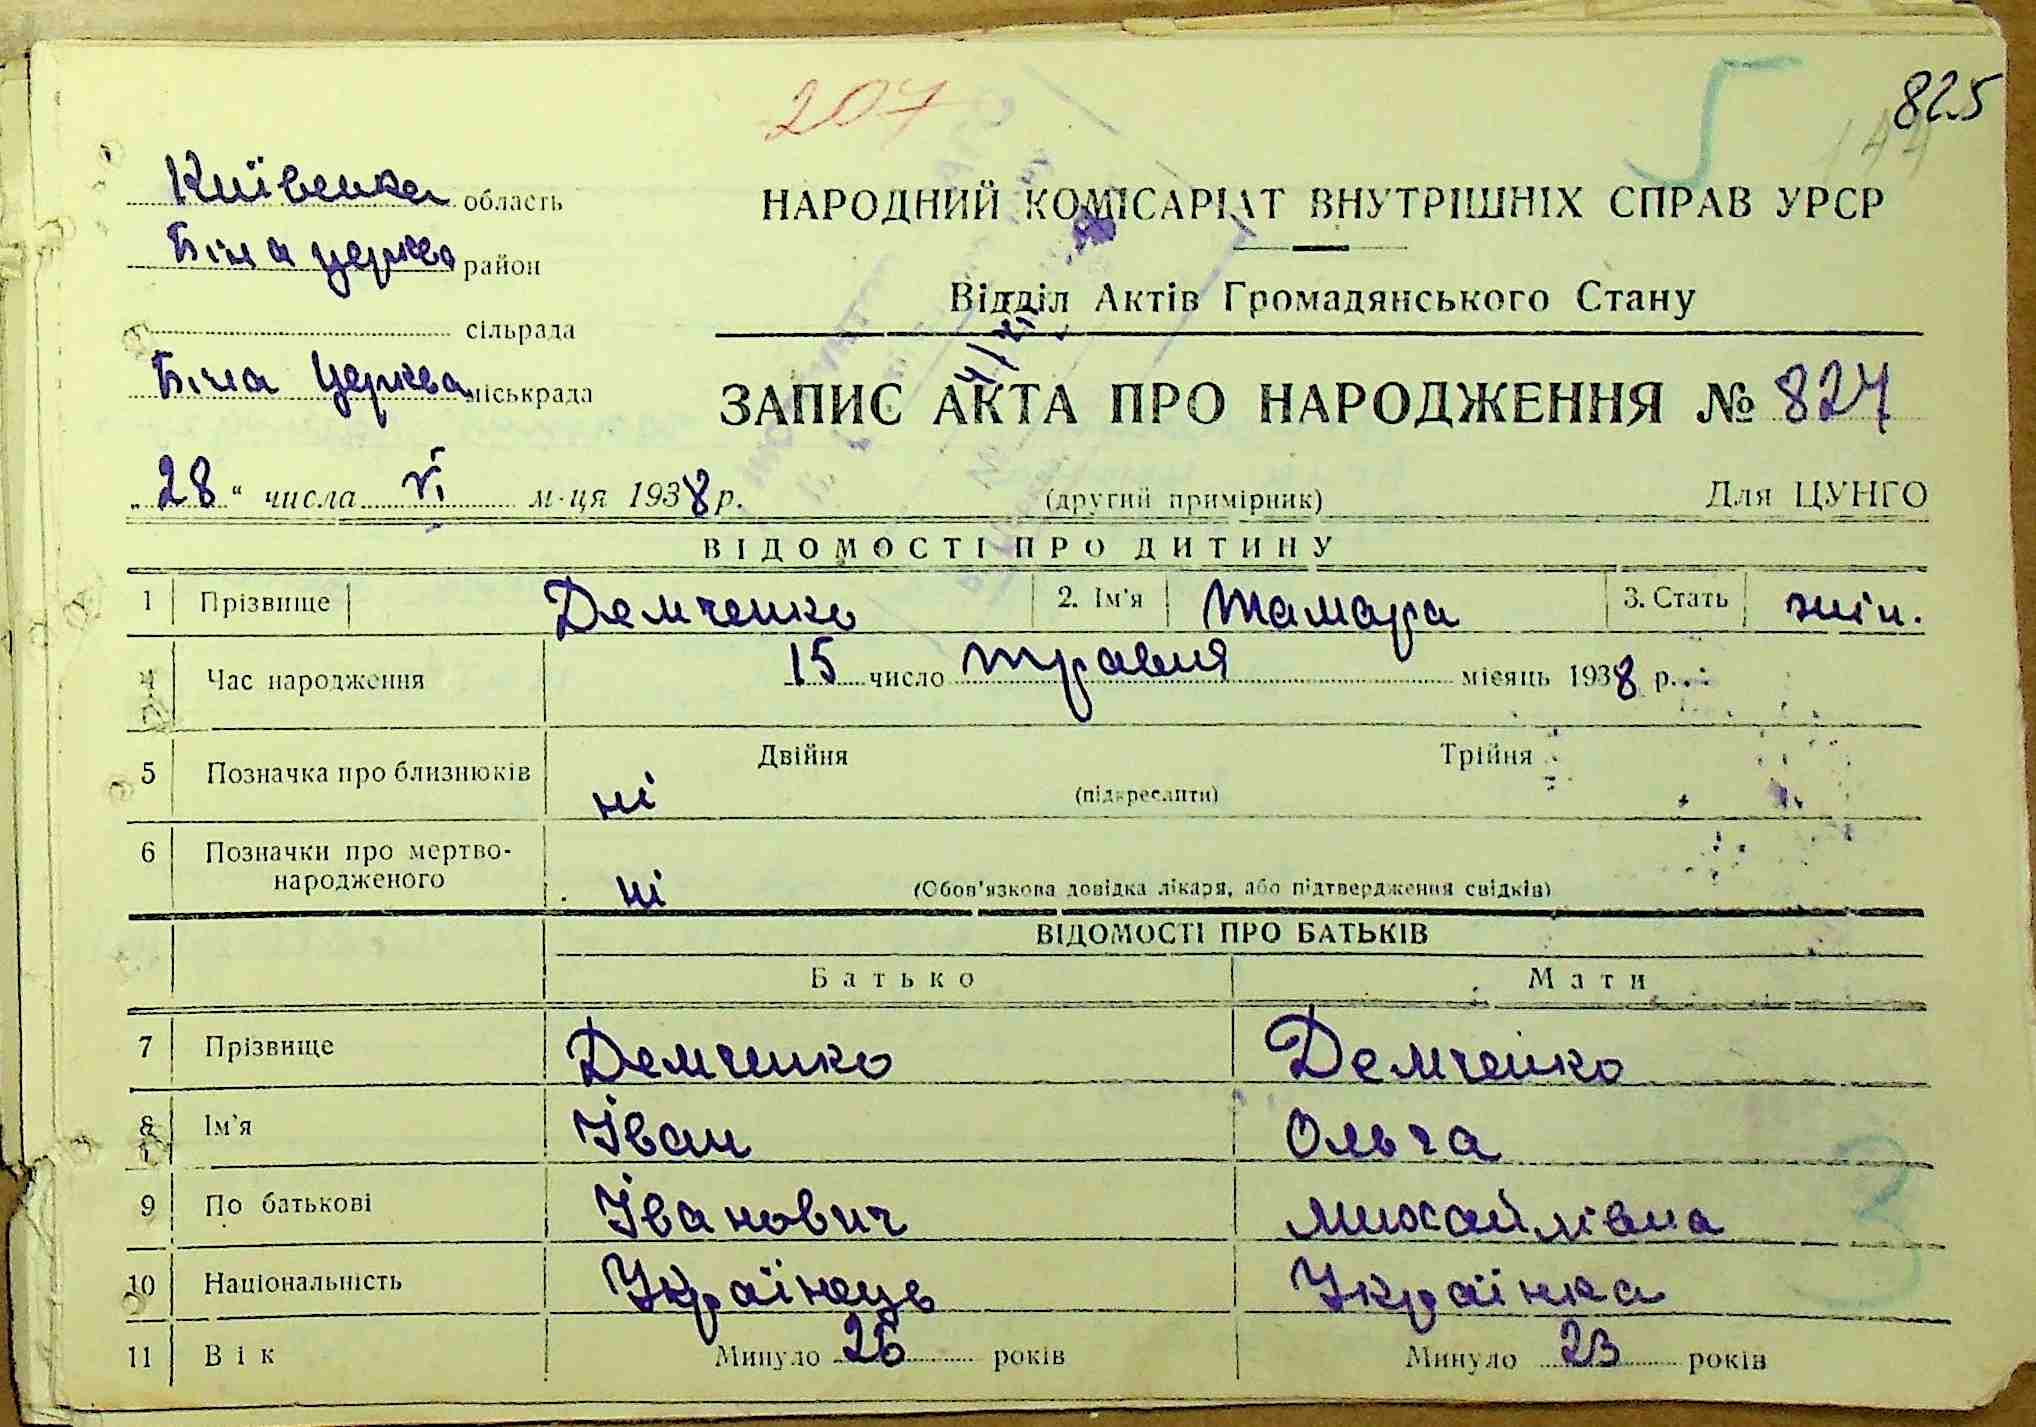 207
825
144
Київська область
Біла церква район
сільрада
Біла Церква міськрада
НАРОДНИЙ КОМІСАРІАТ ВНУТРІШНІХ СПРАВ УРСР
Відділ Актів Громадянського Стану
ЗАПИС АКТА ПРО НАРОДЖЕННЯ № 827
„28“ числа VI м-ця 1938 р.
(другий примірник)
Для ЦУНГО
ВІДОМОСТІ ПРО ДИТИНУ
1 Прізвище Демченко 2. Ім'я Тамара 3. Стать жін.
4 Час народження 15 число травня місяць 1938 р.
5 Позначка про близнюків ні Двійня Трійня
(підкреслити)
6 Позначки про мертво-
народженого ні (Обов'язкова довідка лікаря, або підтвердження свідків)
ВІДОМОСТІ ПРО БАТЬКІВ
Батько Мати
7 Прізвище Демченко Демченко
8 Ім'я Іван Ольга
9 По батькові Іванович Михайлівна
10 Національність Українець Українка
11 Вік Минуло 26 років Минуло 23 років